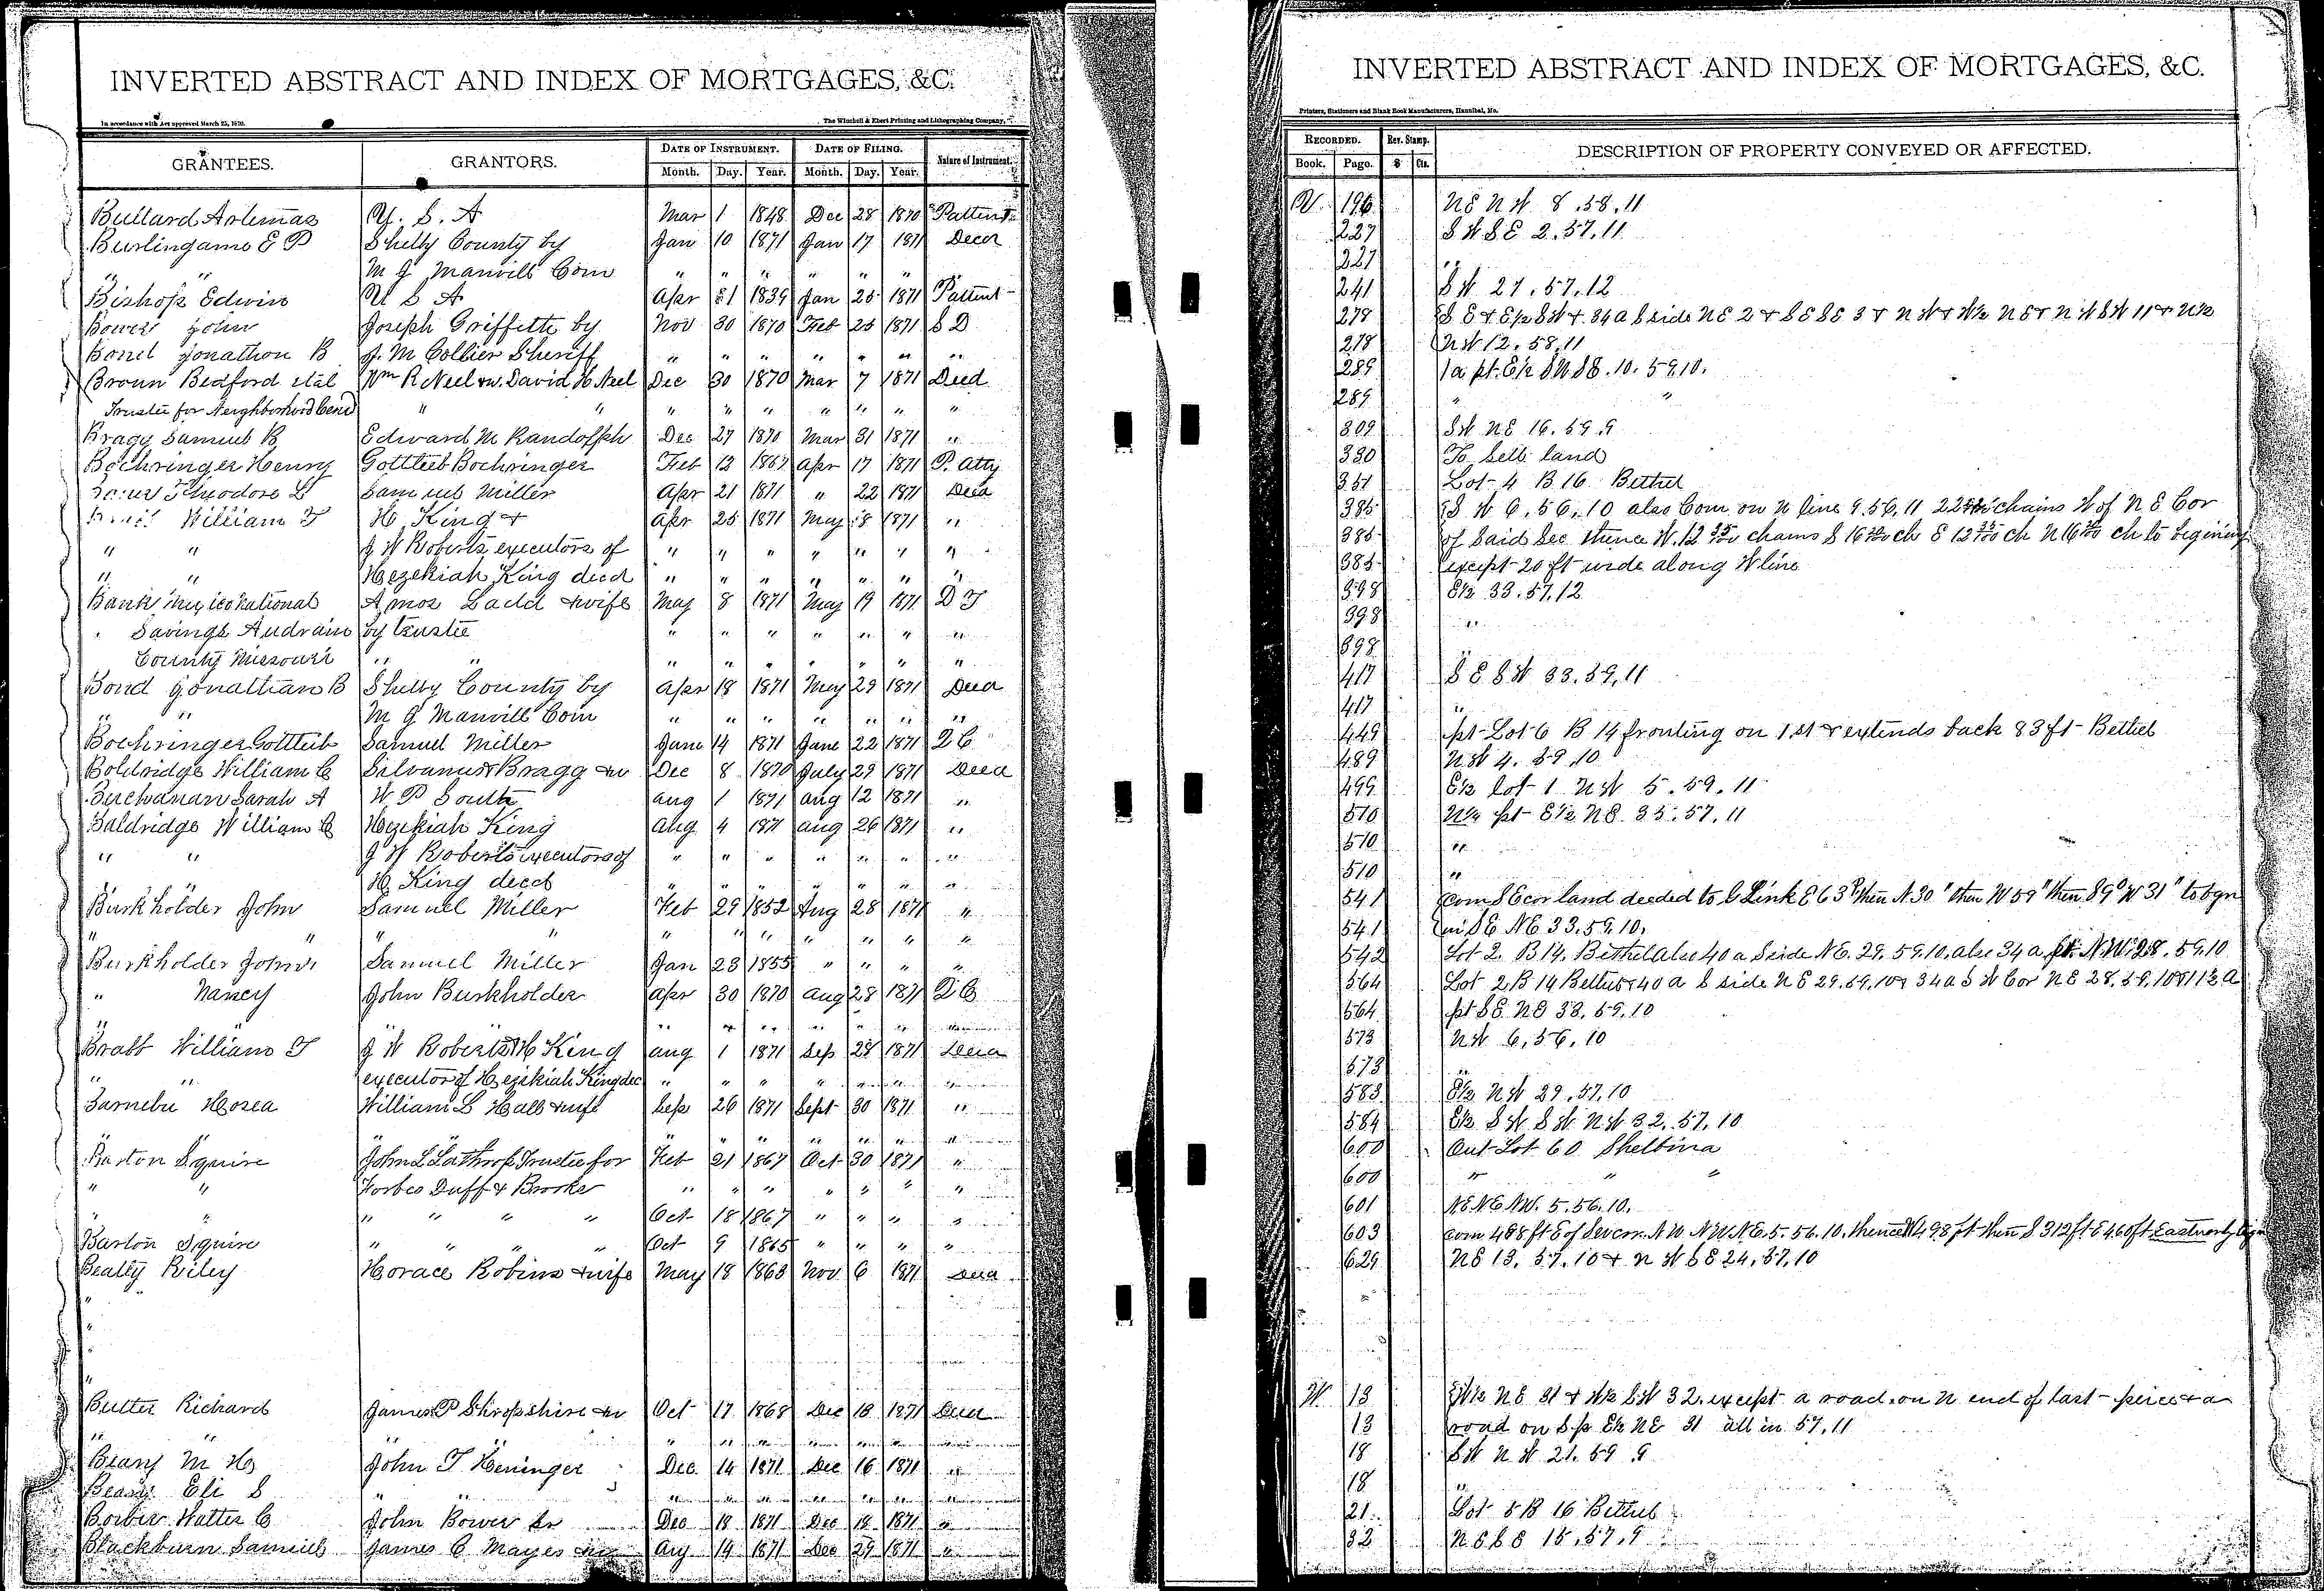 INVERTED ABSTRACT AND INDEX OF MORTGAGES, &C.
In accordance with Act approved March 25, 1870.
The Winchell & Ebert Printing and Lithographing Company,
GRANTEES. GRANTORS. DATE OF INSTRUMENT. DATE OF FILING. Nature of Instrument.
Month. Day. Year. Month. Day. Year.
Bullard Artemas U. S. A Mar 1 1848 Dec 28 1870 Pattent
Burlingame E P Shelby County by Jan 10 1871 Jan 17 1871 Deed
" " M J Manvill Com " " " " " "
Bishop Edwin U S A Apr 1839 Jan 25 1871 Pattent
Bower John Joseph Griffith by Nov 30 1870 Feb 25 1871 S D
Bond Jonathon B J. M Collier Sheriff " " " " " " "
Broun Bedford etal Wm R Neel & w. David H Neel Dec 30 1870 Mar 7 1871 Deed
Trustee for Neighborhood " " " " " " " " "
Bragg Samuel B Edward M Randolph Dec 27 1870 Mar 31 1871 "
Boehringer Henry Gottlieb Boehringer Feb 12 1867 Apr 17 1871 P. Atty
Theodore L Samuel Miller Apr 21 1871 " 22 1871 Deed
William T H King & Apr 25 1871 May 18 1871 "
" " J W Roberts executors of " " " " " " "
" " Hezekiah King decd " " " " " " "
Bank Mexico National Amos Ladd & wife May 8 1871 May 19 1871 D T
Savings Audrain by trustee " " " " " " "
County Missouri " " " " " " " " "
Bond Jonathan B Shelby County by Apr 18 1871 May 29 1871 Deed
" " M J Manvill Com " " " " " " "
Boehringer Gottlieb Samuel Miller June 14 1871 June 22 1871 2 C
Boldridge William C Silvanus Bragg & w Dec 8 1870 July 29 1871 Deed
Buchanan Sarah A W P South Aug 1 1871 Aug 12 1871 "
Baldridge William C Hezekiah King Aug 4 1871 Aug 26 1871 "
" " J W Roberts executors of " " " " " " "
H King decd " " " " " " "
Burkholder John Samuel Miller Feb 29 1852 Aug 28 1871 "
" " " " " " " " " " "
Burkholder John Samuel Miller Jan 23 1855 " " " "
" Nancy John Burkholder Apr 30 1870 Aug 28 1871 2 C
" " " " " " " "
Bratt William T J W Roberts & H King Aug 1 1871 Sep 28 1871 Deed
" " executor of Hezikiah King dec " " " " " " "
Barnebu Hosea William L Hall & wife Sep 26 1871 Sept 30 1871 "
" " " " " " " "
Barton Squire John L Lathrop Trustee for Feb 21 1867 Oct 30 1871 "
" " Forbes Duff & Brooke " " " " " " "
" " " " " " Oct 18 1867 " " " "
Barton Squire " " " " Oct 9 1865 " " " "
Beatty Riley Horace Robins & wife May 18 1863 Nov 6 1871 Deed
Butter Richard James P Shropshire & w Oct 17 1868 Dec 18 1871 Deed
" " " " " " " " " "
Beany M H John T Heninger Dec 14 1871 Dec 16 1871 "
Beany Eli S " " " " " " " " "
Walter C John Bower Sr Dec 18 1871 Dec 18 1871 "
Blackburn Samuel James C Mayes Aug 14 1871 Dec 29 1871 "
INVERTED ABSTRACT AND INDEX OF MORTGAGES, &C.
Printers, Stationers and Blank Book Manufacturers, Hannibal, Mo.
RECORDED. Rev. Stamp. DESCRIPTION OF PROPERTY CONVEYED OR AFFECTED.
Book. Page. $ Cts.
V 196 NE NW 8.58.11
227 SW SE 2.57.11
227 "
241 SW 27.57.12
278 SE & E½ SW & 34 a S side NE 2 & SE SE 3 & NW & W½ NE & NW SW 11 & N½
278 NW 12.58.11
289 1a pt. E½ SW SE. 10. 59.10.
289 " "
309 SW NE 16.59.9
330 To sell land
351 Lot 4 B 16 Bethel
385 SW 6.56.10 also Com on N line 9.56.11 chains W of NE Cor
385 of said Sec thence W. chains S ch E ch N ch to begining
385 except 20 ft wide along W line
398 E½ 33.57.12
398 "
398
417 SE SW 33.59.11
417 "
449 pt Lot 6 B 14 fronting on 1 st & extends back 83 ft Bethel
489 NW 4.59.10
499 E½ lot 1 NW 5.59.11
510 pt E½ NE 35.57.11
510 "
510 "
541 com SE cor land deeded to G Link E 63 P then N 30 " then W 59 " then S 9° W 31 " to bgn
541 in SE NE 33.59.10.
542 Lot 2. B 14. Bethel also 40 a S side NE. 29. 59.10. also 34 a pt. N.W. 28. 59.10
564 Lot 2 B 14 Bethel & 40 a S side NE 29.59.10 & 34 a SW Cor NE 28.59.10 & 11½ a
564 pt SE NE 33.59.10
573 NW 6.56.10
573 "
583 E½ NW 29.57.10
584 E½ SW SW NW 32.57.10
600 Out Lot 60 Shelbina
600 " " "
601 NE NE NW. 5.56.10.
603 com 488 ft E of Sev cor. NW NW NE. 5. 56.10. thence N 498 ft then S 312 ft E 460 ft
629 NE 13.57.10 & NW SE 24.57.10
W 13 W½ NE 31 & W½ SW 32 except a road on N end of last peice & a
13 road on S p E½ NE 31 all in 57.11
18 SW NW 21.59.9
18 "
21 Lot 5 B 16 Bethel
32 NE SE 15.57.9